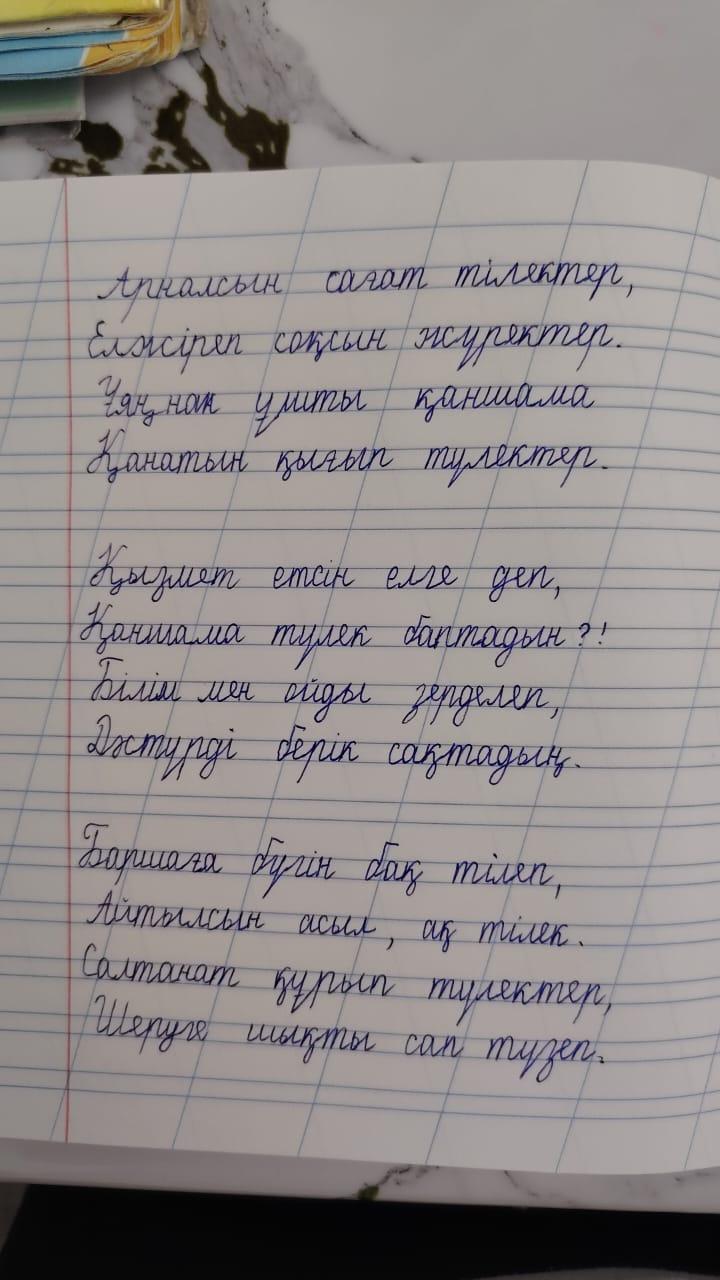 Арналсын сағат тілектер,
Елжіреп соқсын жүректер.
Ұяңнан ұшты қаншама
Қанатын қығып түлектер.
Қызмет етсін елге деп,
Қаншама түлек баптадын?!
Білім мен ойды зерделеп,
Дәстүрді берік сақтадың.
Баршаға бүгін бақ тілеп,
Айтылсын асыл, ақ тілек.
Салтанат құрып түлектер,
Шеруге шықты сап түзеп.